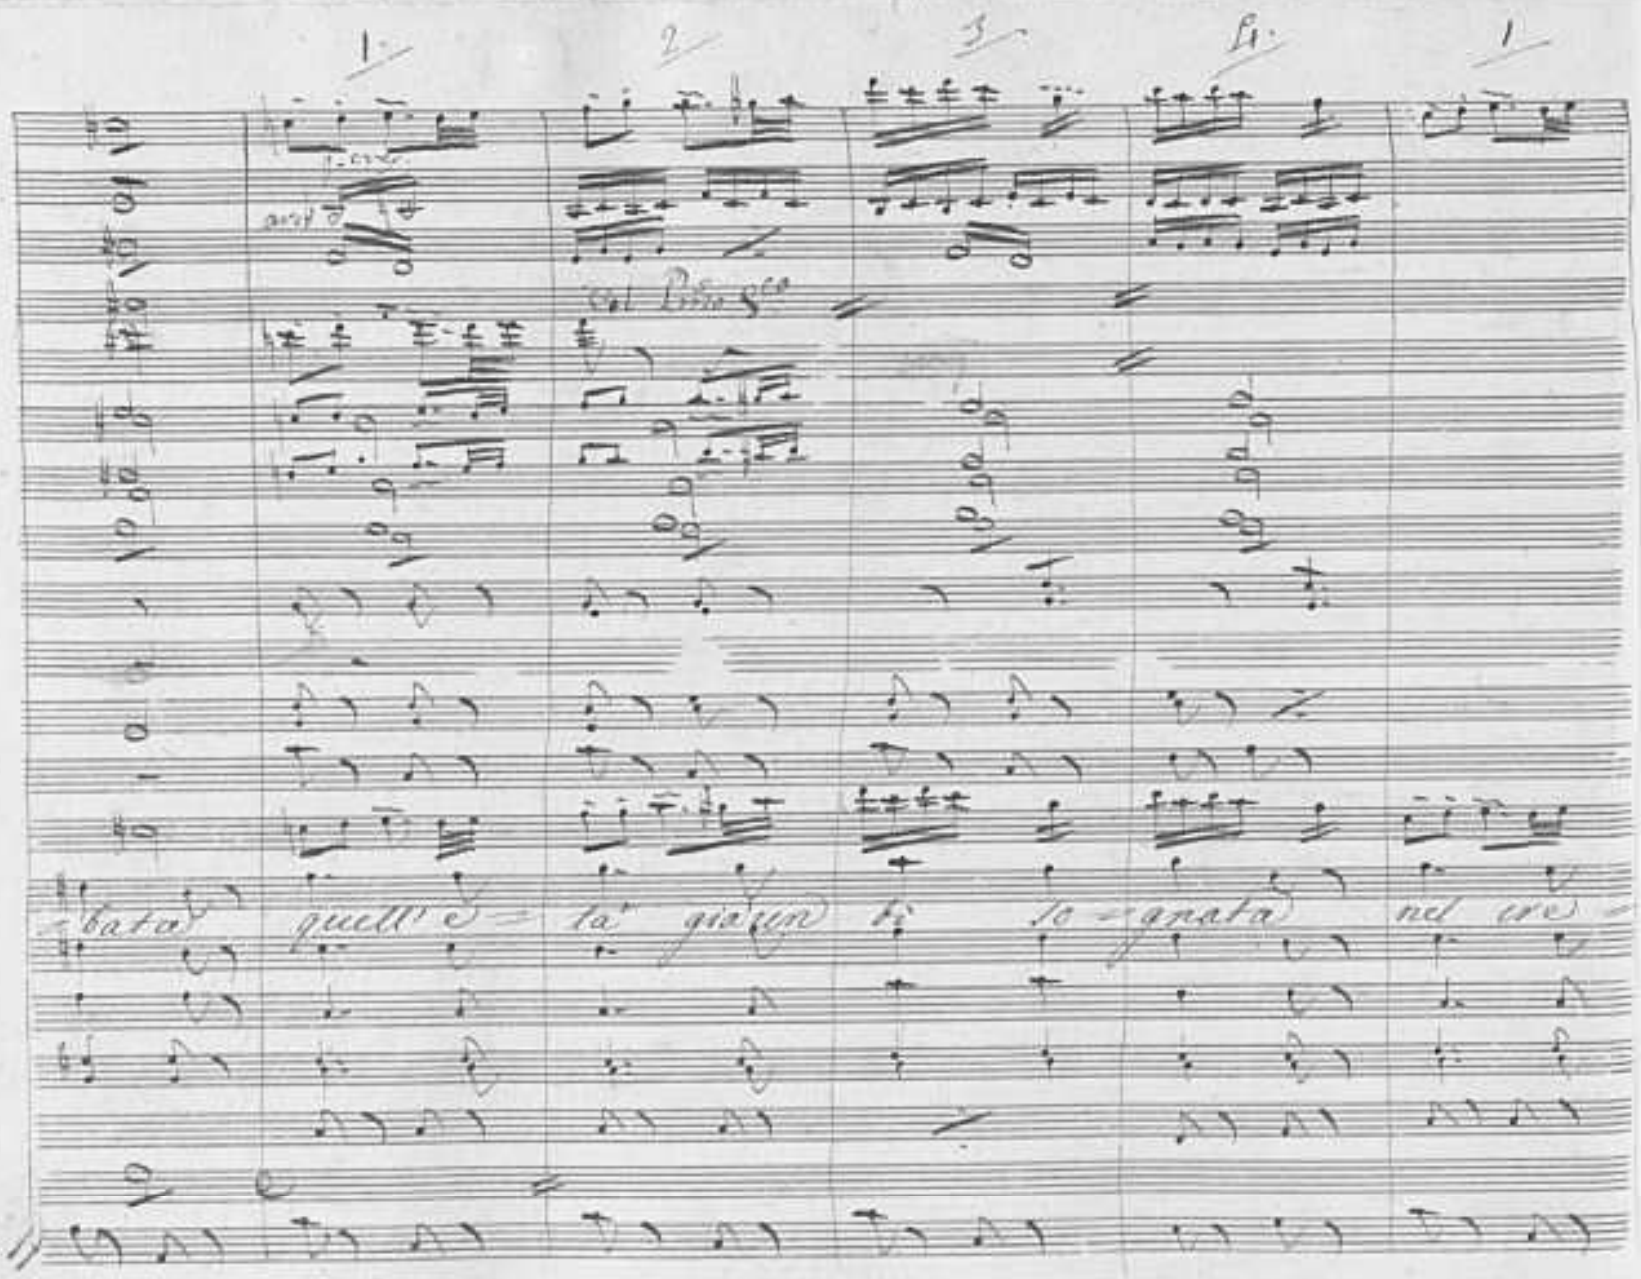 1. 2 3 4. 1
Col Primo 8va
=bata quell' e = la già un bi so = gnata nel cre =